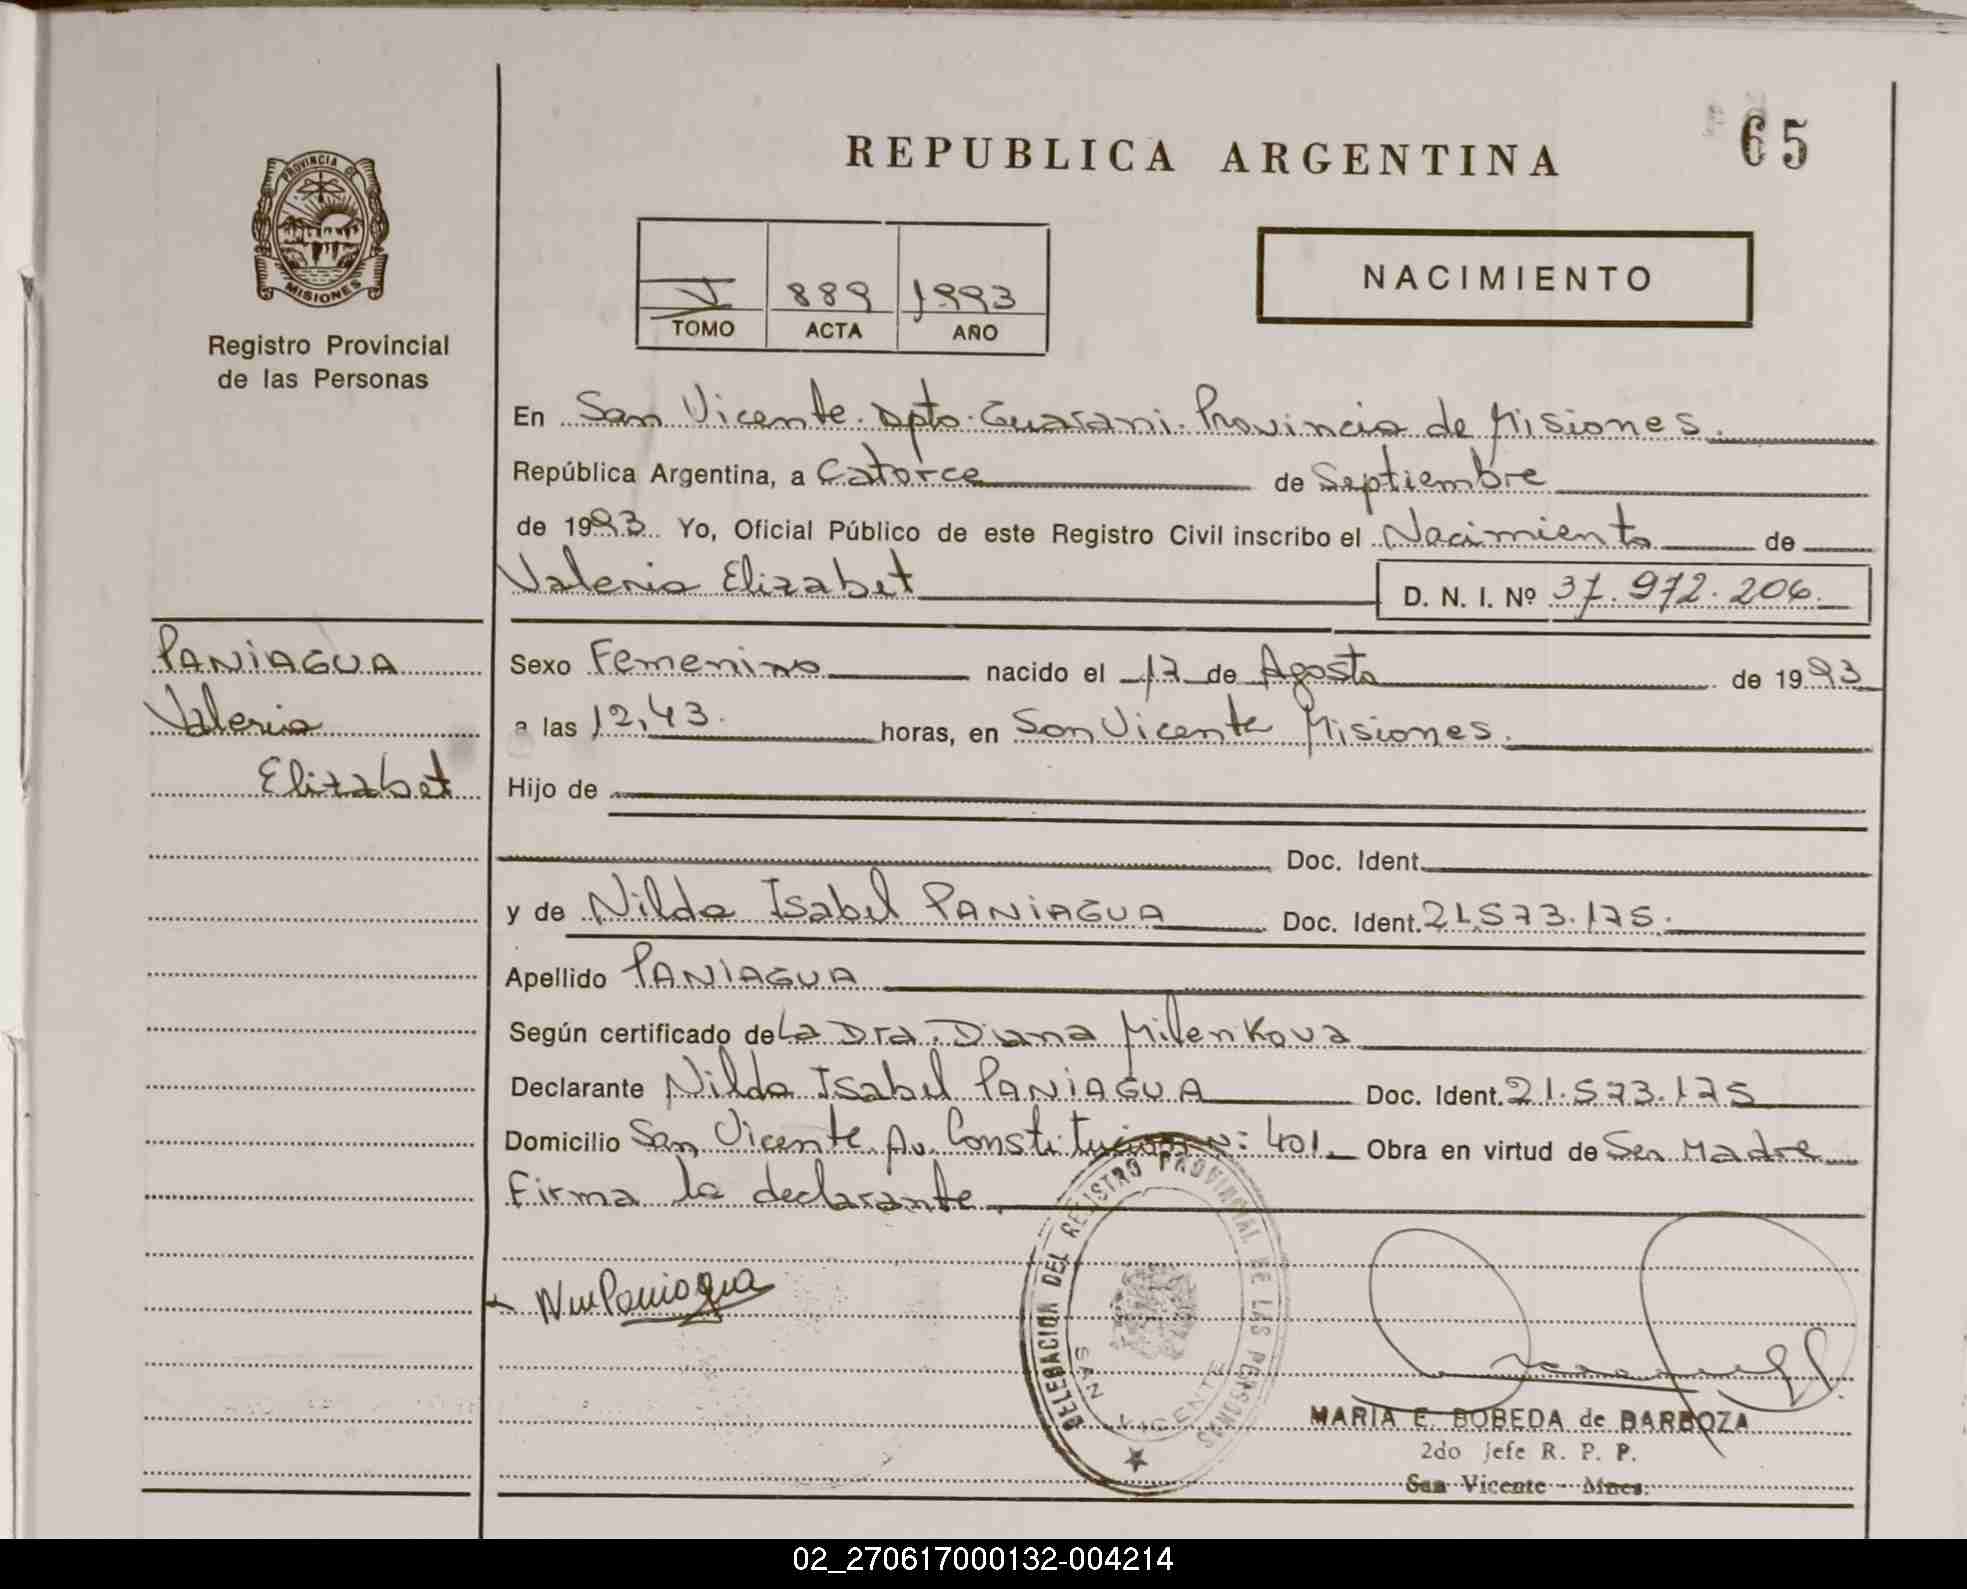 65
REPUBLICA ARGENTINA
PROVINCIA DE
MISIONES
Registro Provincial
de las Personas
V 889 1993
TOMO ACTA AÑO
NACIMIENTO
En San Vicente. Dpto. Guarani. Provincia de Misiones.
República Argentina, a Catorce de Septiembre
de 1993. Yo, Oficial Público de este Registro Civil inscribo el Nacimiento de
Valeria Elizabet D. N. I. Nº 37.972.206.
PANIAGUA
Valeria
Elizabet
Sexo Femenino nacido el 17 de Agosto de 1993
a las 12,43. horas, en San Vicente Misiones.
Hijo de
Doc. Ident.
y de Nilda Isabel PANIAGUA Doc. Ident. 21.573.175.
Apellido PANIAGUA
Según certificado de La Dra. Diana Milenkova
Declarante Nilda Isabel PANIAGUA Doc. Ident. 21.573.175
Domicilio San Vicente Av. Constitucion Nº: 401 Obra en virtud de Ser Madre
Firma la declarante.
Paniagua
DELEGACION DEL REGISTRO PROVINCIAL DE LAS PERSONAS
SAN VICENTE
MARIA E. BOBEDA de BARBOZA
2do Jefe R. P. P.
San Vicente - Mnes.
02_270617000132-004214